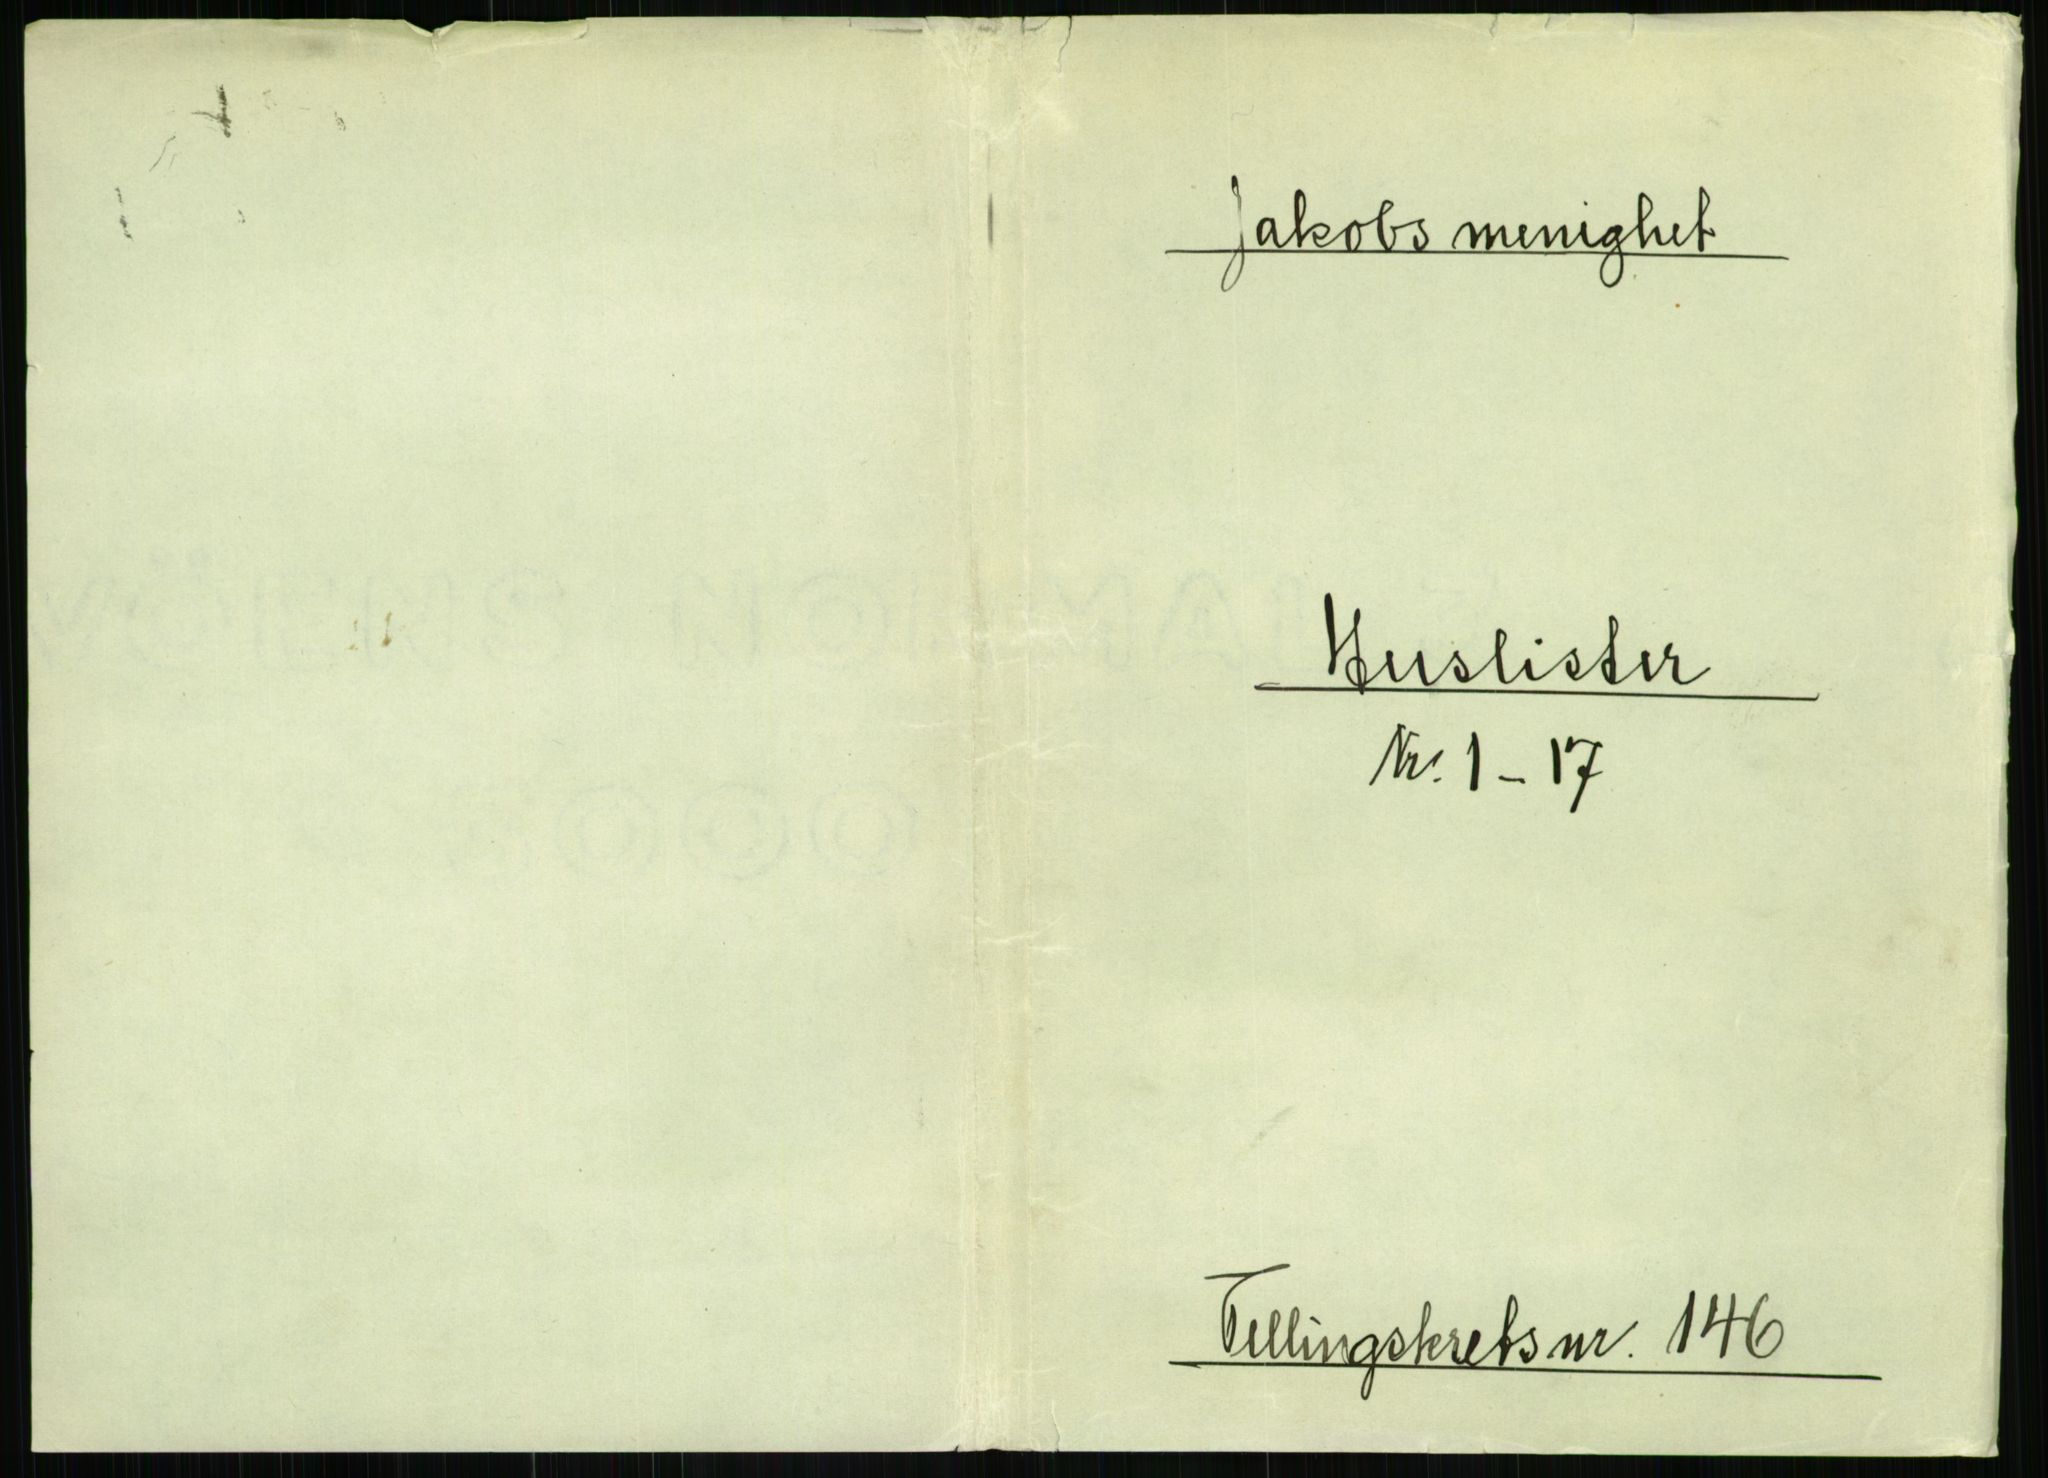 Jakobs menighet
Huslister
Nr. 1 - 17
Tellingskrets nr. 146